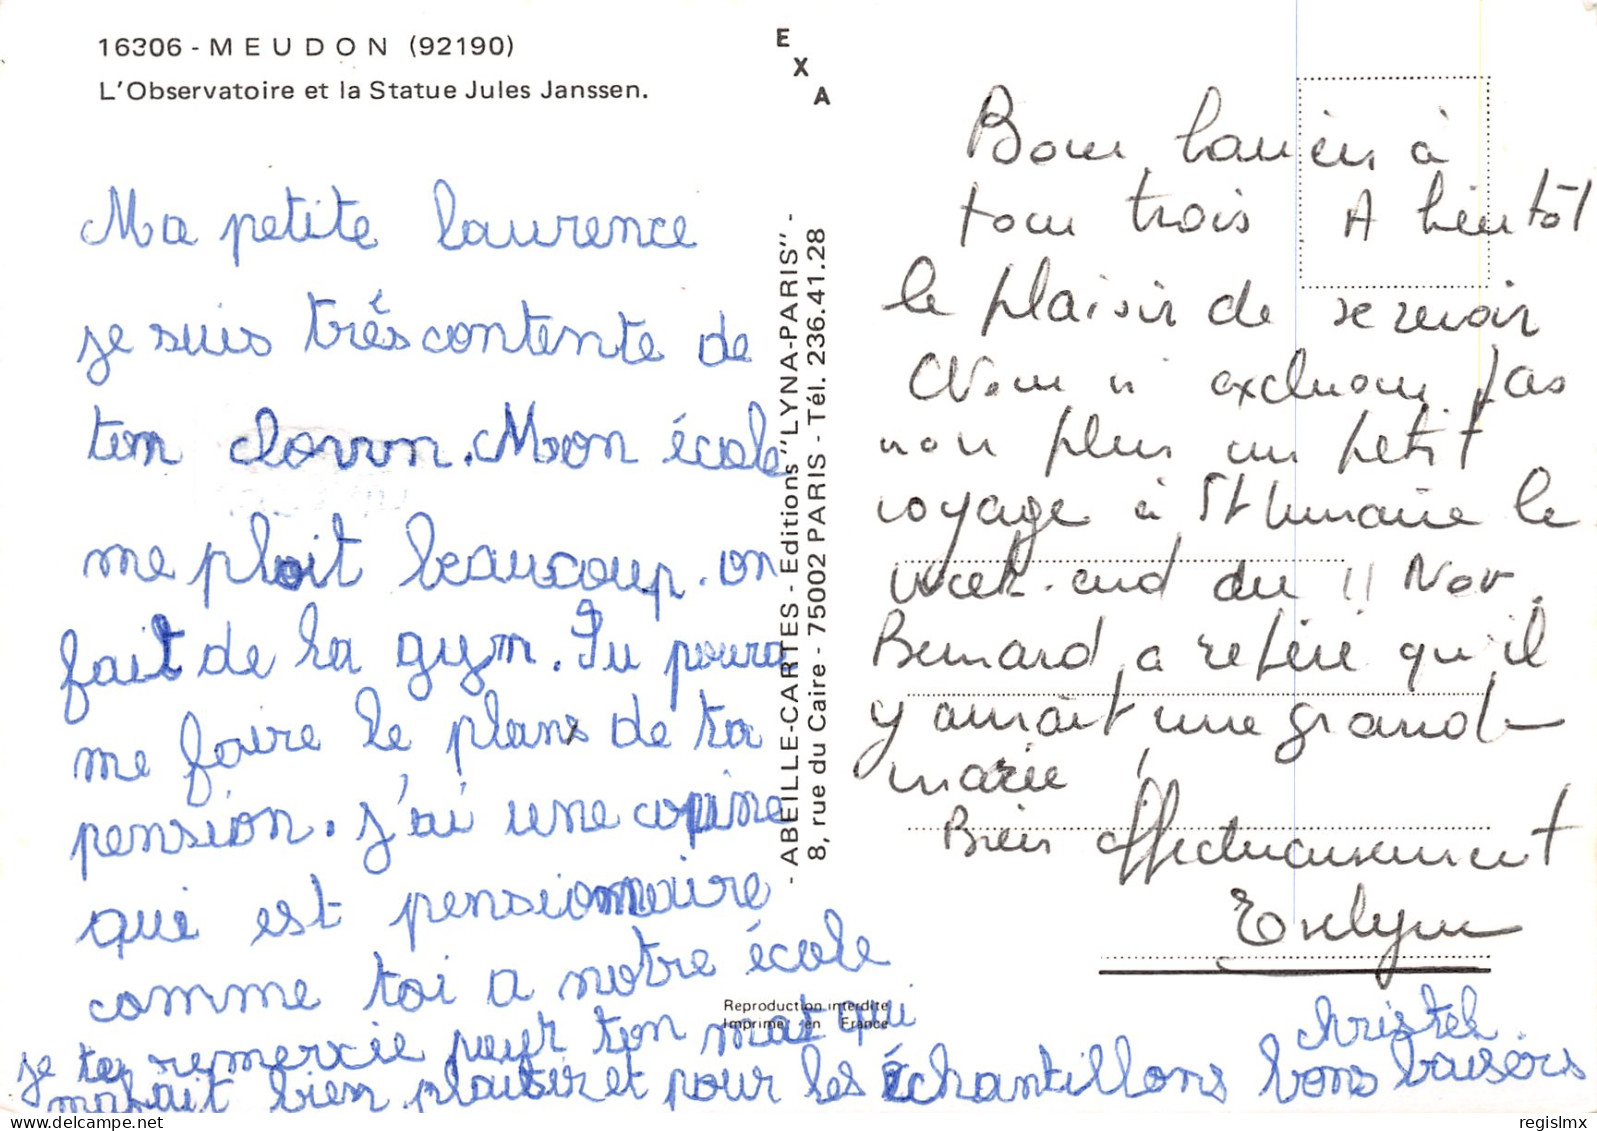 16306 - MEUDON (92190)
L'Observatoire et la Statue Jules Janssen.
EXA
Ma petite laurence
je suis très contente de
ton clown. Mon école
me plait beaucoup. on
fait de la gym. Tu pourra
me faire le plans de ta
pension. j'ai une copine
qui est pensionnaire
comme toi a notre école
je te remercie pour ton mot qui
m'a fait bien plaisir et pour les échantillons bons baisers
christel
- ABEILLE-CARTES - Editions "LYNA-PARIS" -
8, rue du Caire - 75002 PARIS - Tél. 236.41.28
Reproduction interdite
Imprimé en France
Bons baisers à
tous trois A bientôt
le plaisir de se revoir
Nous n'excluons pas
non plus un petit
voyage à St lunaire le
week-end du 11 Nov.
Bernard a repéré qu'il
y aurait une grande
marée !
Bien affectueusement
Evelyne
regislmx